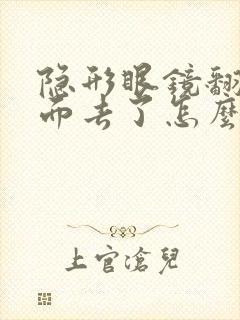 隐形眼镜翻
而去了怎麼
上官滄兒